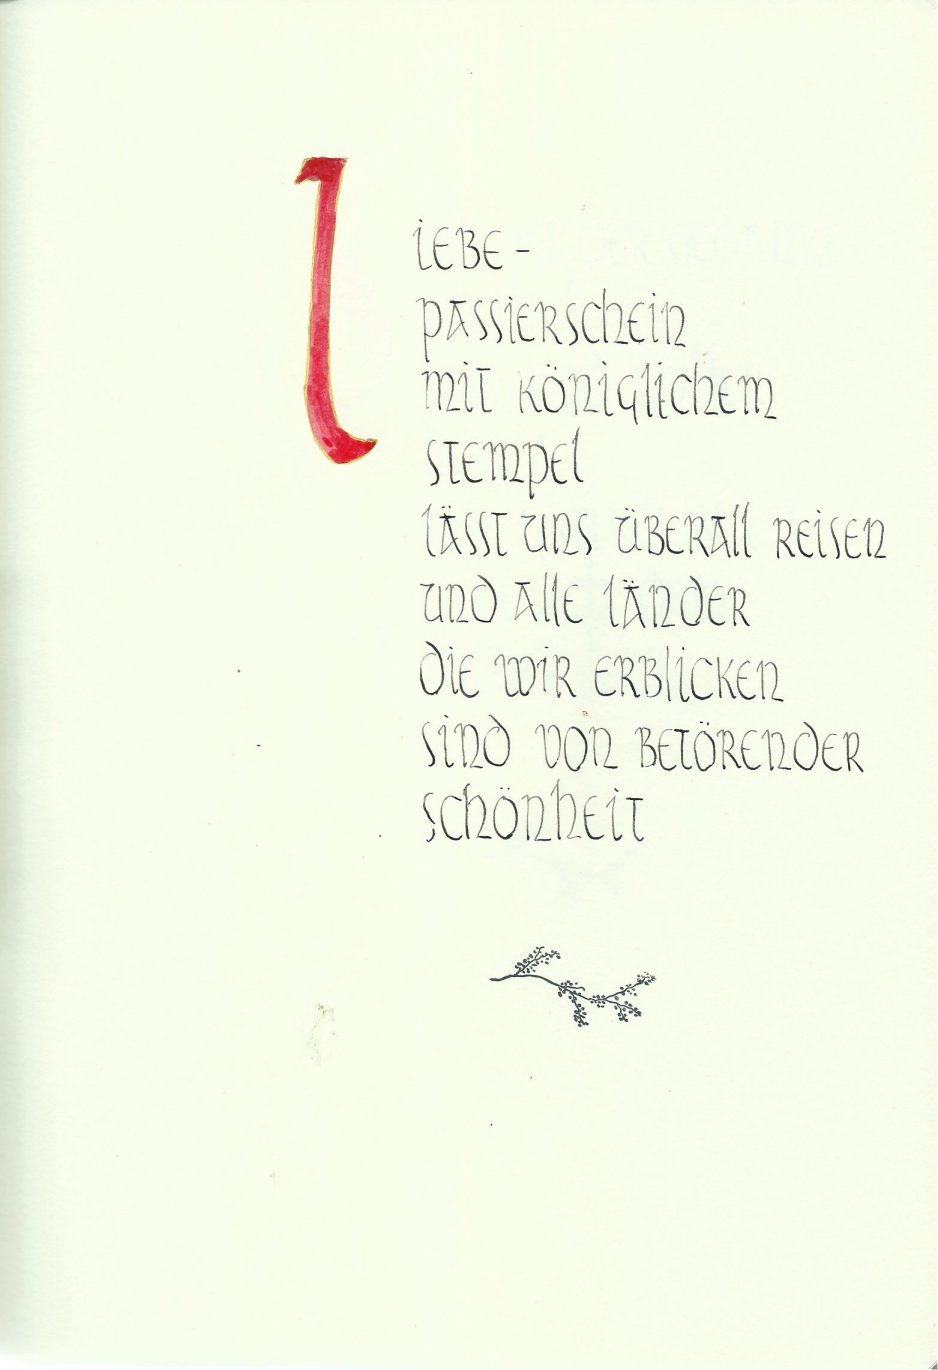 liebe –
passierschein
mit königlichem
stempel
lässt uns überall reisen
und alle länder
die wir erblicken
sind von betörender
schönheit